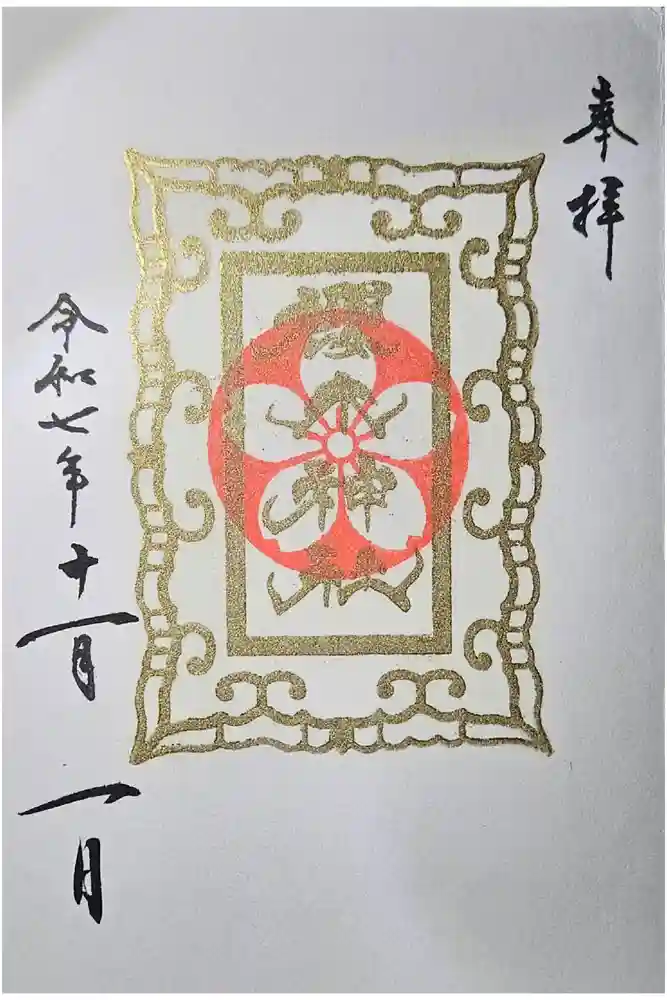 奉拝
櫻木神社
令和七年十一月一日